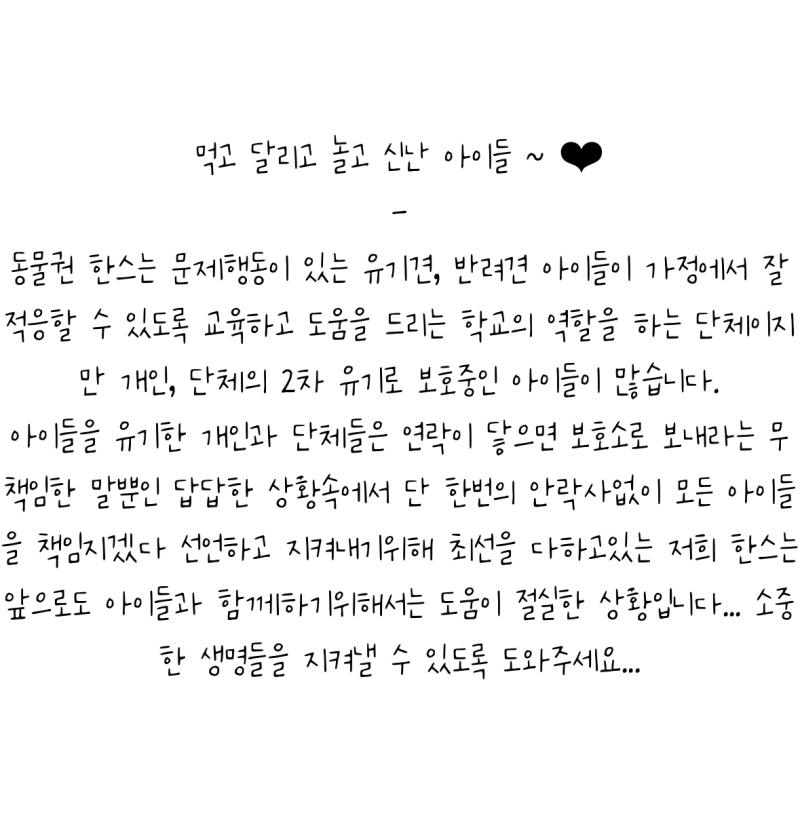 먹고 달리고 놀고 신난 아이들 ~ ❤
-
동물권 한스는 문제행동이 있는 유기견, 반려견 아이들이 가정에서 잘
적응할 수 있도록 교육하고 도움을 드리는 학교의 역할을 하는 단체이지
만 개인, 단체의 2차 유기로 보호중인 아이들이 많습니다.
아이들을 유기한 개인과 단체들은 연락이 닿으면 보호소로 보내라는 무
책임한 말뿐인 답답한 상황속에서 단 한번의 안락사없이 모든 아이들
을 책임지겠다 선언하고 지켜내기위해 최선을 다하고있는 저희 한스는
앞으로도 아이들과 함께하기위해서는 도움이 절실한 상황입니다... 소중
한 생명들을 지켜낼 수 있도록 도와주세요...